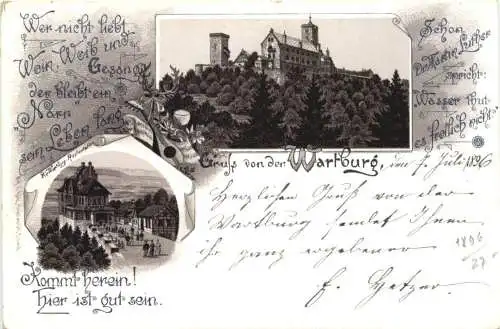 Wer nicht liebt
Wein, Weib und
Gesang
der bleibt ein
"Narr"
sein Leben lang
Schon
Dr. Martin Luther
spricht:
Wasser thut
es freilich nicht"
Gruss von der Wartburg, den 7. Juli 1896
Herzlichen Gruß von der
Wartburg sendet Ihnen
ihr ganz ergebener
F. Hetzer
1896
27
Kommt herein!
Hier ist gut sein.